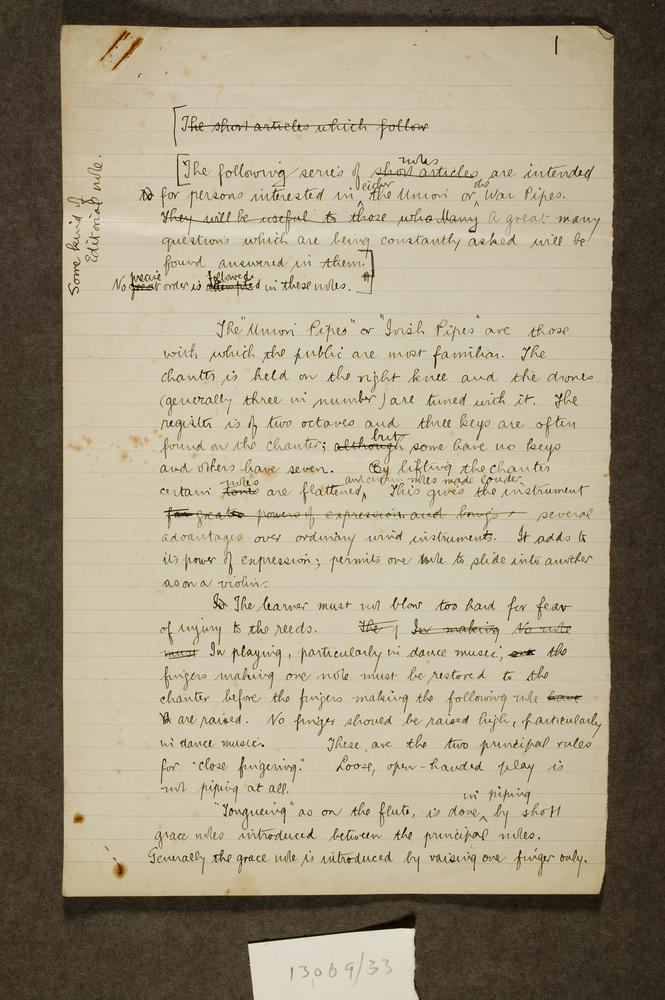 1
[The short articles which follow
notes
[The following series of short articles are intended
either the
to for persons interested in ^ the Union or ^ War Pipes.
They will be useful to those who Many A great many
questions which are being constantly asked will be
found answered in them.
precise followed
No great order is attempted in these notes. ]
Some kind of
Editorial note.
The "Union Pipes" or "Irish Pipes" are those
with which the public are most familiar. The
chanter is held on the right knee and the drones
(generally three in number) are tuned with it. The
register is of two octaves and three keys are often
but
found on the chanter; although some have no keys
and others have seven. By lifting the chanter
notes and certain notes made louder.
certain tones are flattened ^ This gives the instrument
far greater powers of expression and brings several
advantages over ordinary wind instruments. It adds to
its power of expression; permits one note to slide into another
as on a violin.
The learner must not blow too hard for fear
of injury to the reeds. The In making No note
must In playing, particularly in dance music, the
fingers making one note must be restored to the
chanter before the fingers making the following note have
are raised. No finger should be raised high, particularly
in dance music. These are the two principal rules
for "close fingering." Loose, open-handed play is
not piping at all.
in piping
"Tongueing" as on the flute, is done ^ by short
grace notes introduced between the principal notes.
Generally the grace note is introduced by raising one finger only.
13,069/33